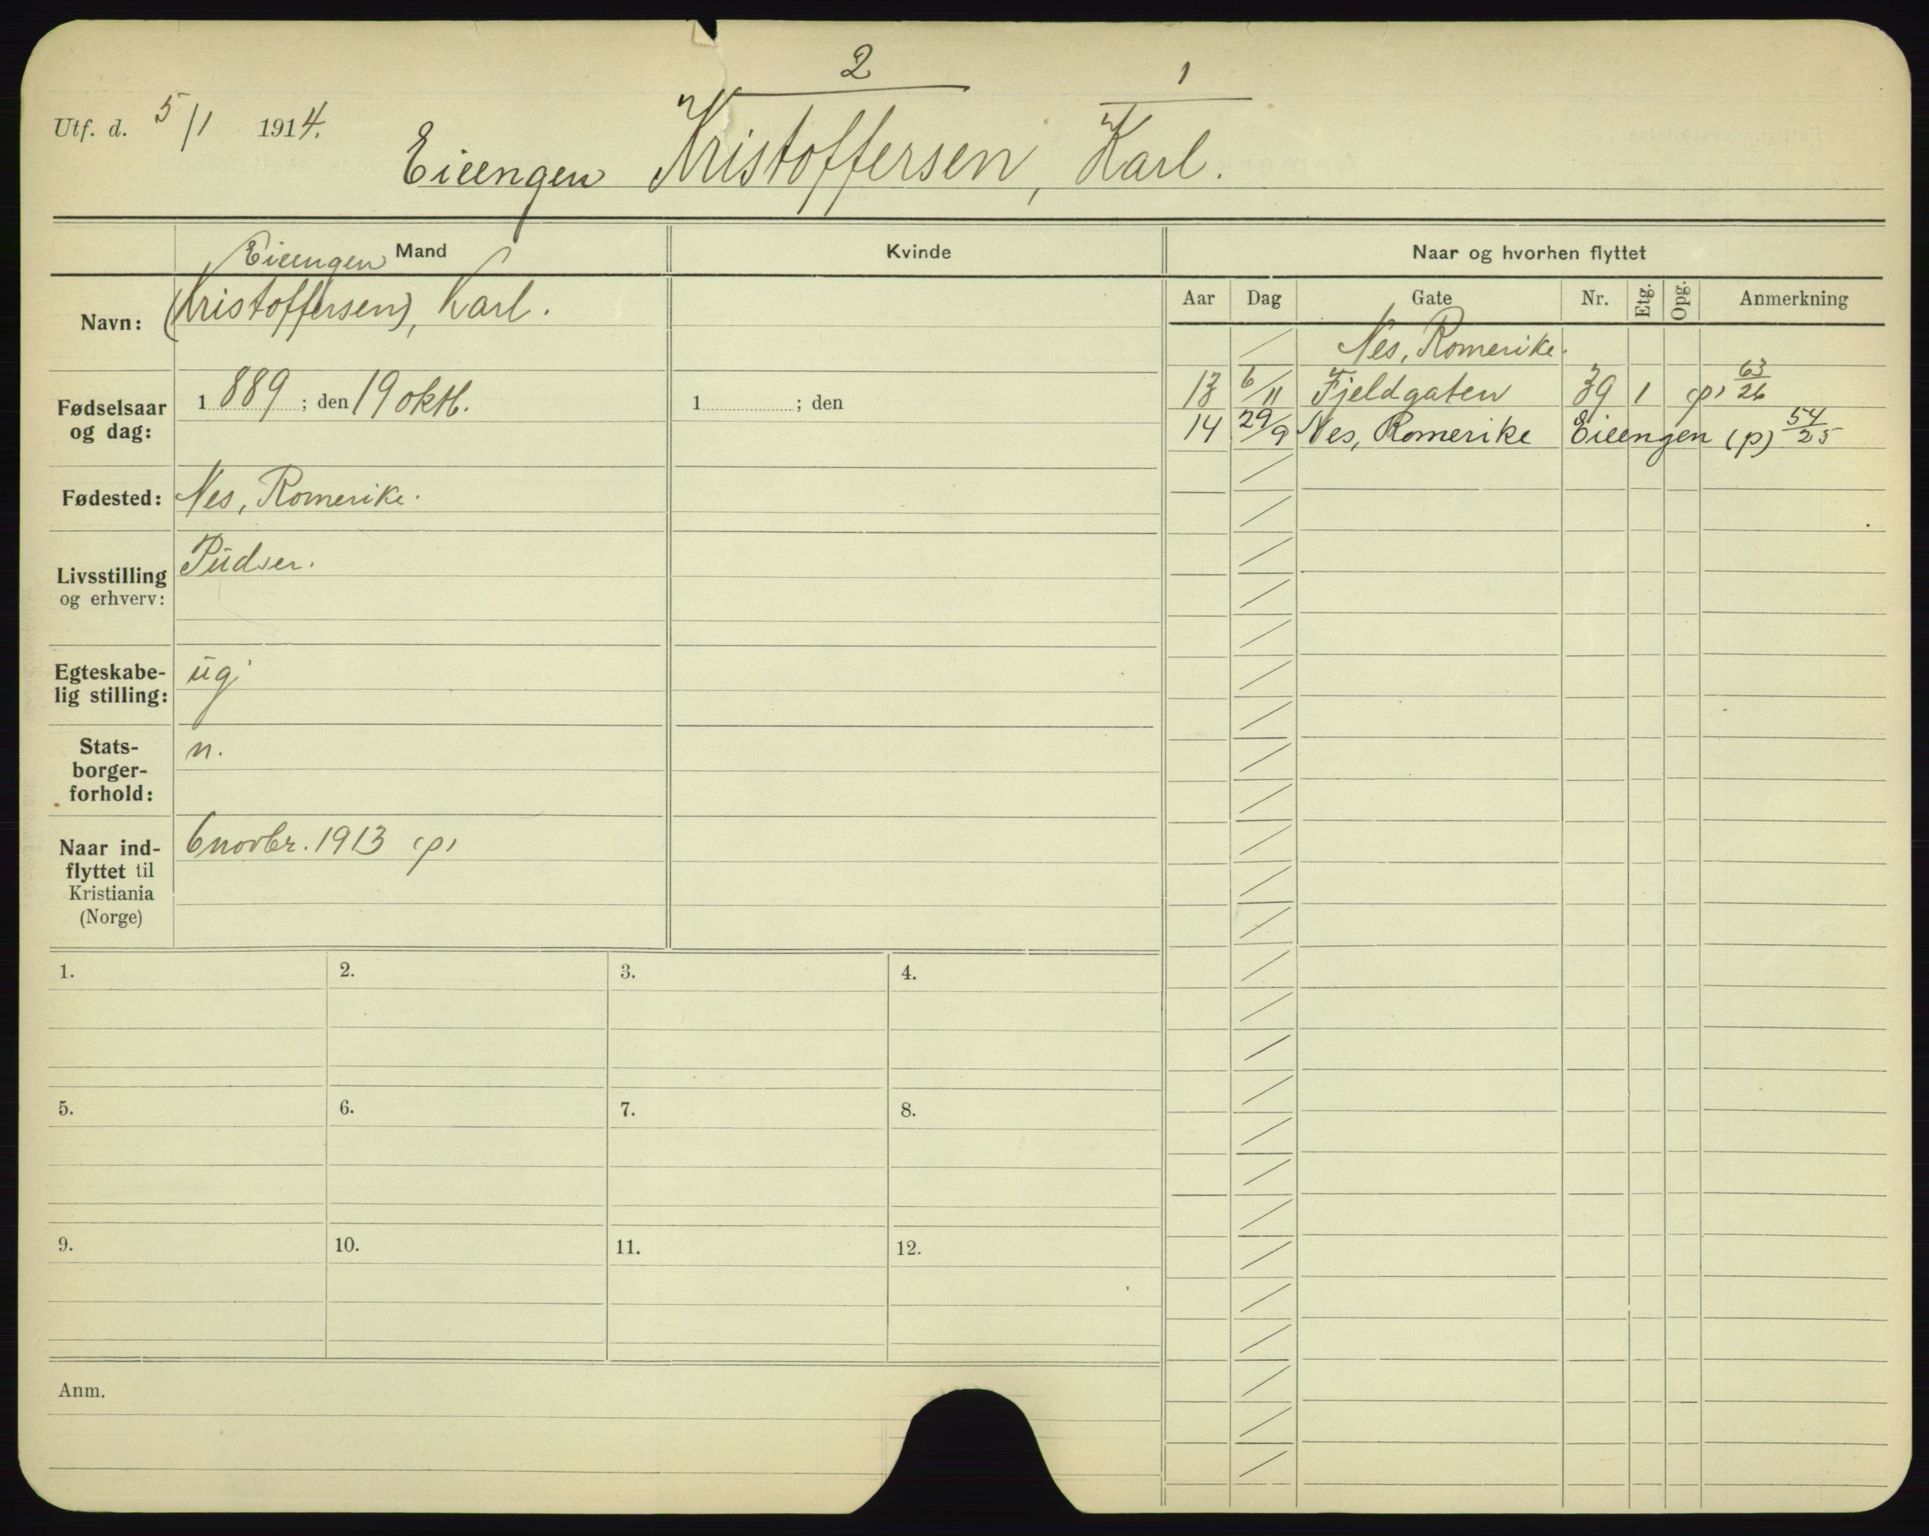 2 1
Utf. d. 5/1 1914.
Eieengen Kristoffersen, Karl.
Mand
Kvinde
Naar og hvorhen flyttet
Navn:
Eieengen
(Kristoffersen), Karl.
Fødselsaar
og dag:
1889; den 19 oktb.
1 ; den
Fødested:
Nes, Romerike.
Livsstilling
og erhverv:
Pudser.
Egteskabe-
lig stilling:
ug.
Stats-
borger-
forhold:
n.
Naar ind-
flyttet til
Kristiania
(Norge)
6 novbr. 1913 (p)
Aar Dag Gate Nr. Etg. Opg. Anmerkning
Nes, Romerike.
13 6/11 Fjeldgaten 39 1 (p) 63/26
14 29/9 Nes, Romerike Eieengen (p) 54/25
1. 2. 3. 4.
5. 6. 7. 8.
9. 10. 11. 12.
Anm.